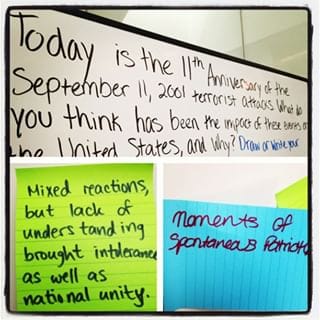 Today is the 11th Anniversary of the
September 11, 2001 terrorist attacks. What do
you think has been the impact of these events on
the United States, and why? Draw or write your
Mixed reactions,
but lack of
understanding
brought intolerance
as well as
national unity.
moments of
Spontaneous Patriot